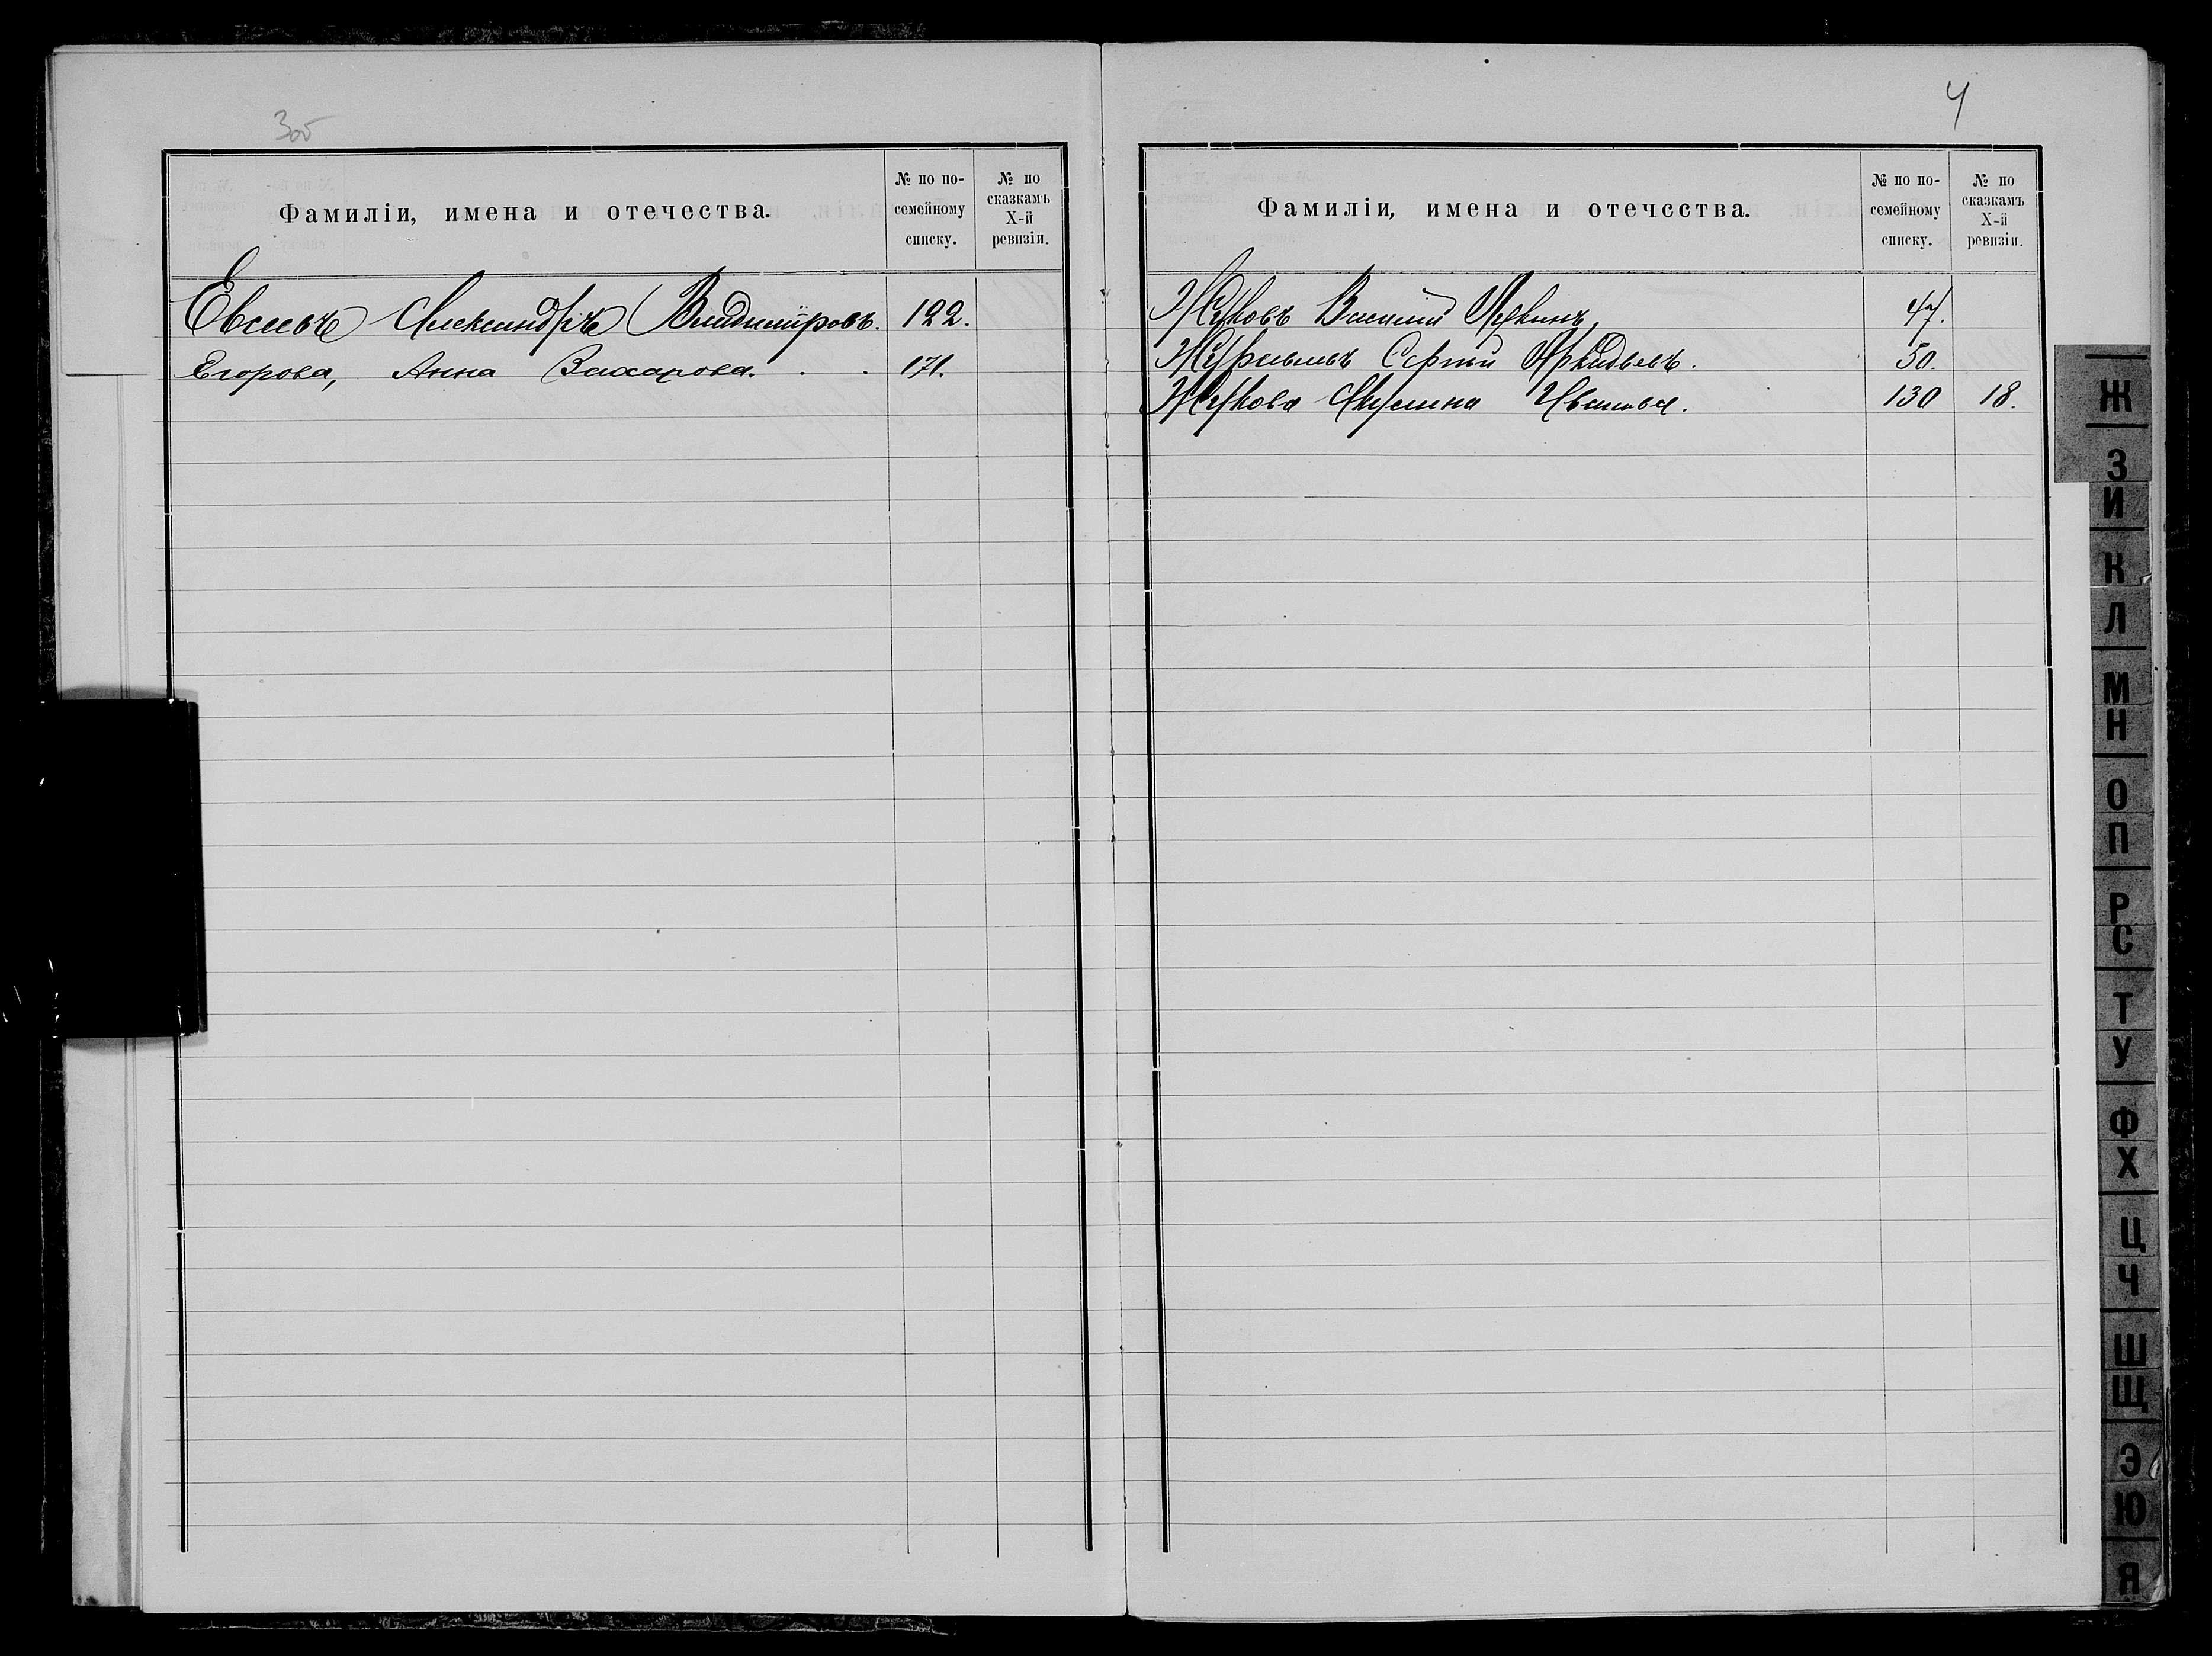 3об
Фамиліи, имена и отечества.
№ по по-
семейному
списку.
№ по
сказкамъ
X-й
ревизіи.
Евсеевъ Александръ Владиміровъ. 122.
Егорова, Анна Захарова. . . 171.
4
Фамиліи, имена и отечества.
№ по по-
семейному
списку.
№ по
сказкамъ
X-й
ревизіи.
Жуковъ Василий 47.
Сергѣй 50.
Жукова Акулина Иванова. 130 18.
Ж
З
И
К
Л
М
Н
О
П
Р
С
Т
У
Ф
Х
Ц
Ч
Ш
Щ
Э
Ю
Я